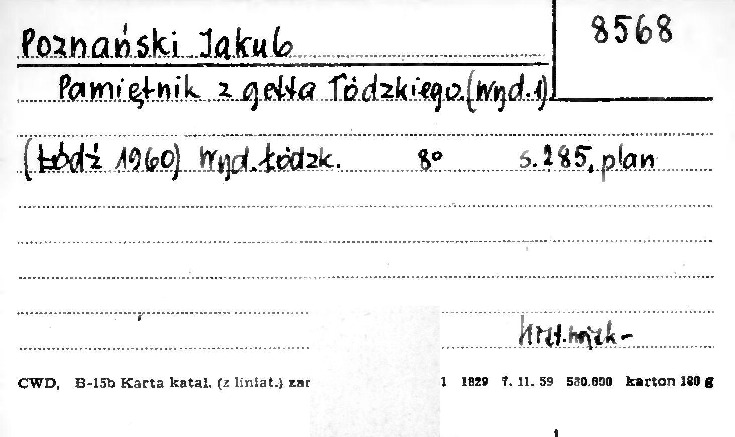 8568
Poznański Jakub
Pamiętnik z getta łódzkiego. (Wyd. 1)
(Łódź 1960) Wyd. Łódzk. 8° s. 285, plan
CWD, B-15b Karta katal. (z liniat.) zar 1 1829 7. 11. 59 580.000 karton 180 g